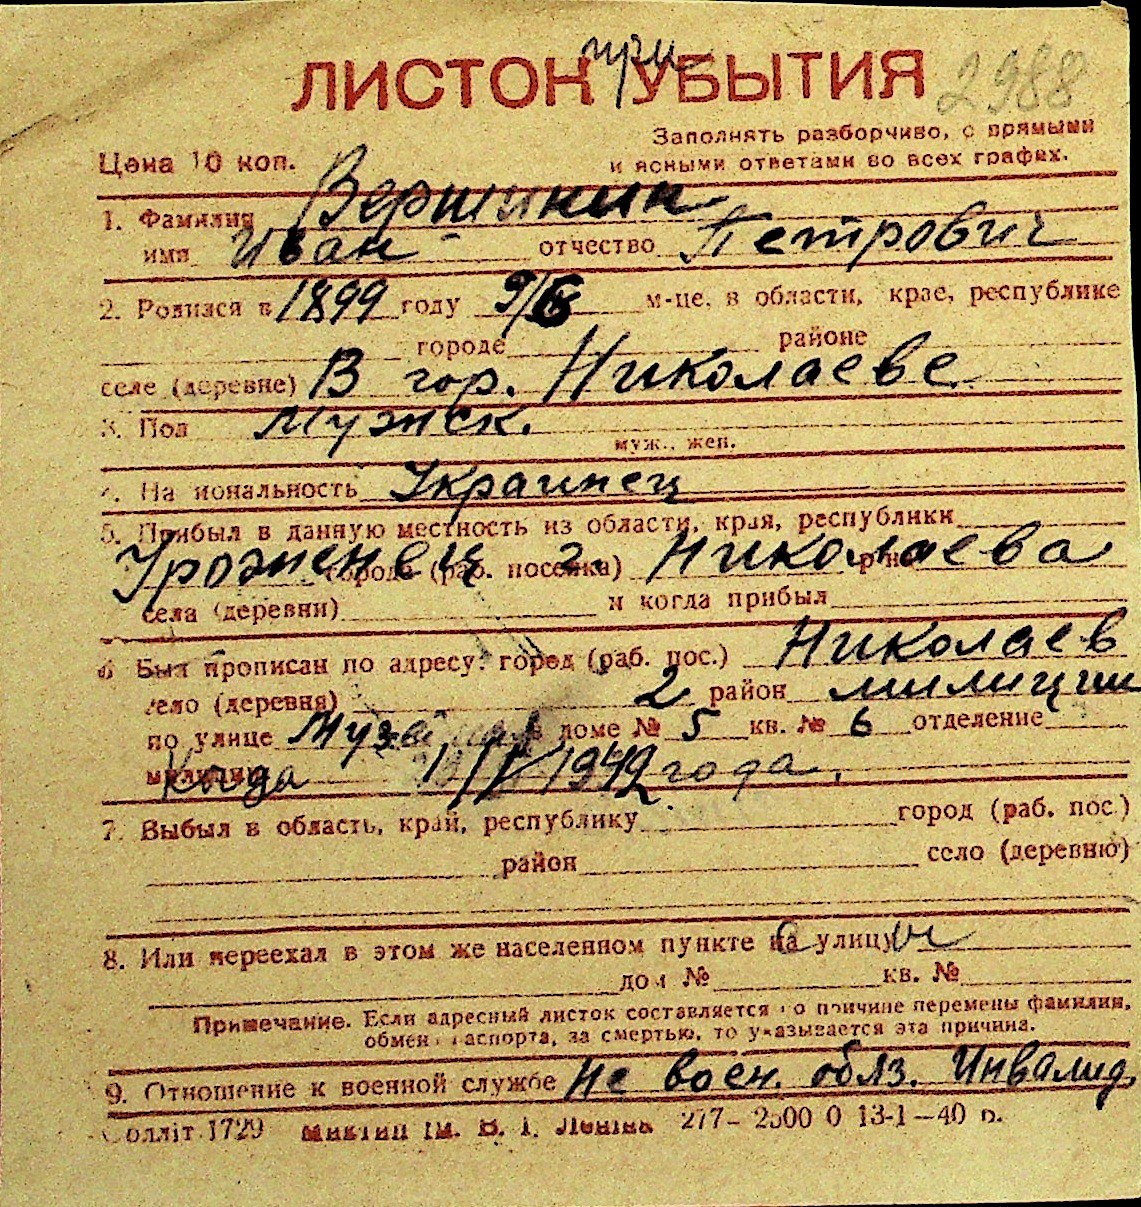 при
ЛИСТОК УБЫТИЯ 2988
Заполнять разборчиво, с прямыми
Цена 10 коп. и ясными ответами во всех графах.
1. Фамилия Вершинин
имя Иван отчество Петрович
2. Родился в 1899 году 9/ м-це, в области, крае, республике
городе районе
селе (деревне) В гор. Николаеве
3. Пол Мужск.
муж., жен.
4. Национальность Украинец
5. Прибыл в данную местность из области, края, республики
Уроженец г. Николаева
города (раб. поселка) р-на
села (деревни) и когда прибыл
6 Был прописан по адресу: город (раб. пос.) Николаев
село (деревня) 2 район милиции
по улице в доме № 5 кв. № 6 отделение
милиции Когда 1942 года.
7. Выбыл в область, край, республику город (раб. пос.)
район село (деревню)
8. Или переехал в этом же населенном пункте на улицу
дом № кв. №
Примечание. Если адресный листок составляется по причине перемены фамилии,
обмена паспорта, за смертью, то указывается эта причина.
9. Отношение к военной службе Не воен. обяз. Инвалид.
1729 ім. В. І. Леніна 277– 2500 0 13-1–40 р.